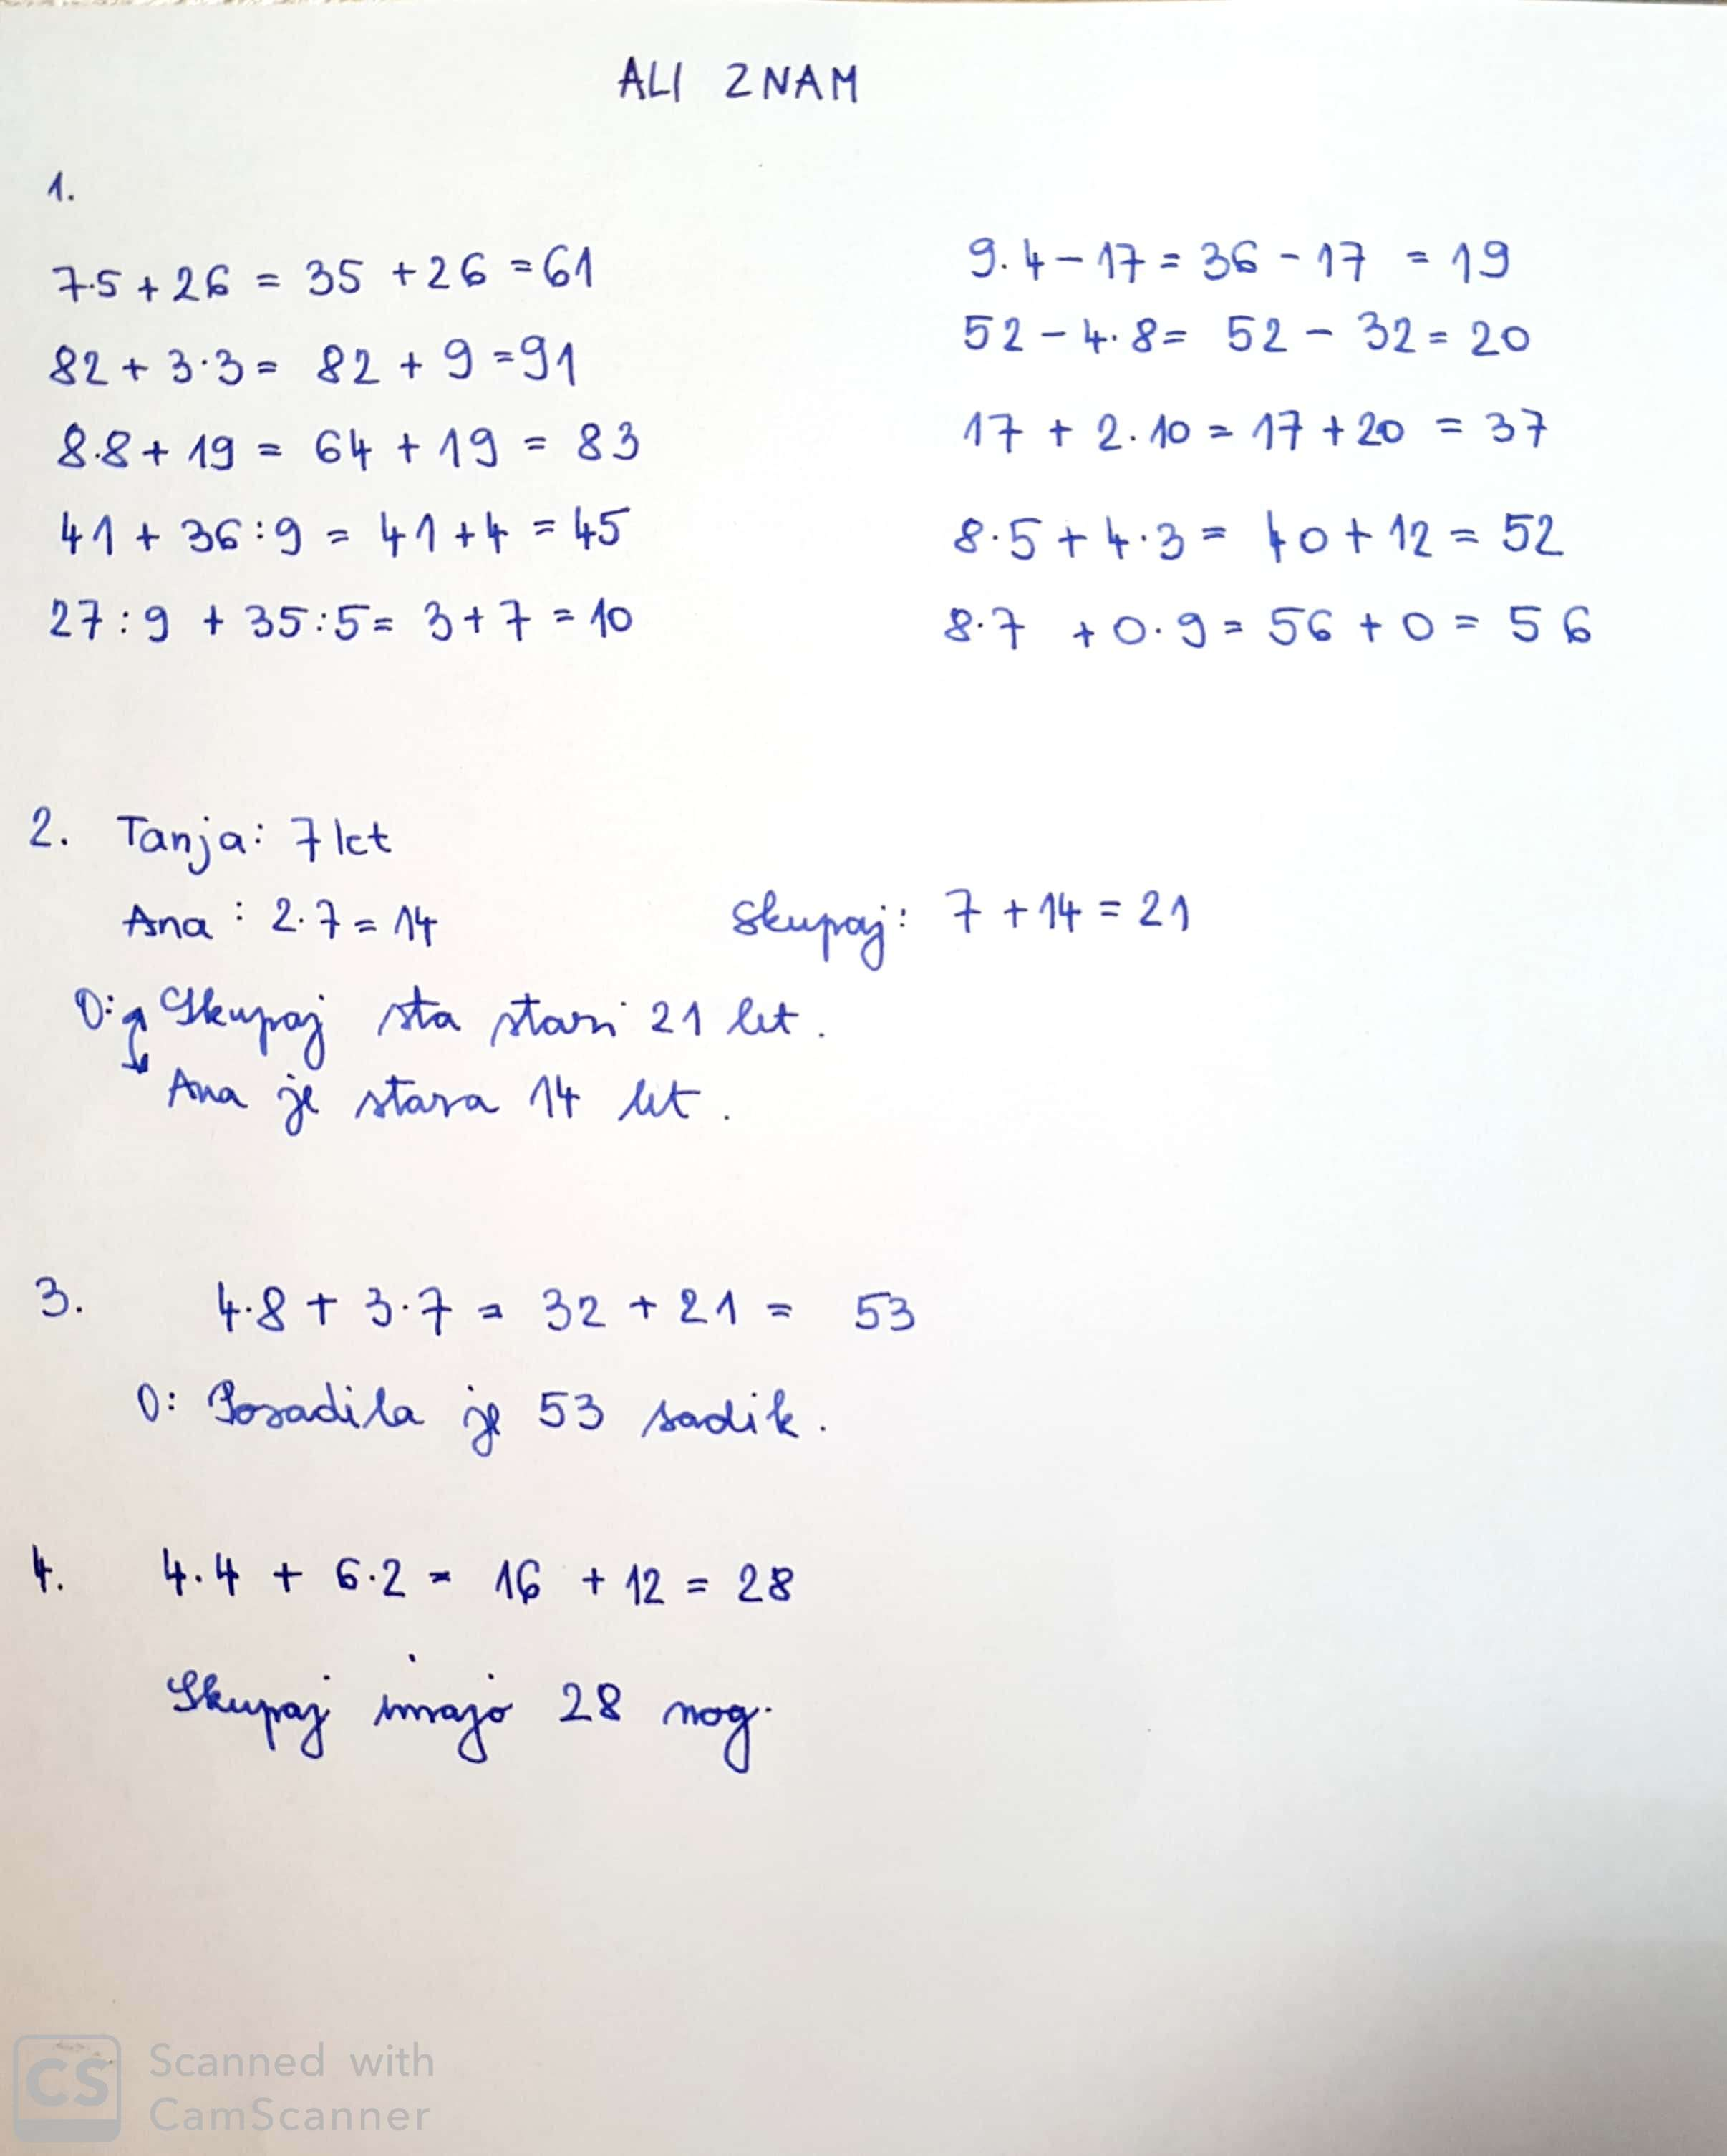 ALI ZNAM
1.
7·5 + 26 = 35 + 26 = 61
82 + 3·3 = 82 + 9 = 91
8·8 + 19 = 64 + 19 = 83
41 + 36:9 = 41 + 4 = 45
27:9 + 35:5 = 3 + 7 = 10
9·4 - 17 = 36 - 17 = 19
52 - 4·8 = 52 - 32 = 20
17 + 2·10 = 17 + 20 = 37
8·5 + 4·3 = 40 + 12 = 52
8·7 + 0·9 = 56 + 0 = 56
2. Tanja: 7 let
Ana: 2·7 = 14
Skupaj: 7 + 14 = 21
O: Skupaj sta stari 21 let.
Ana je stara 14 let.
3. 4·8 + 3·7 = 32 + 21 = 53
O: Posadila je 53 sadik.
4. 4·4 + 6·2 = 16 + 12 = 28
Skupaj imajo 28 nog.
CS Scanned with
CamScanner